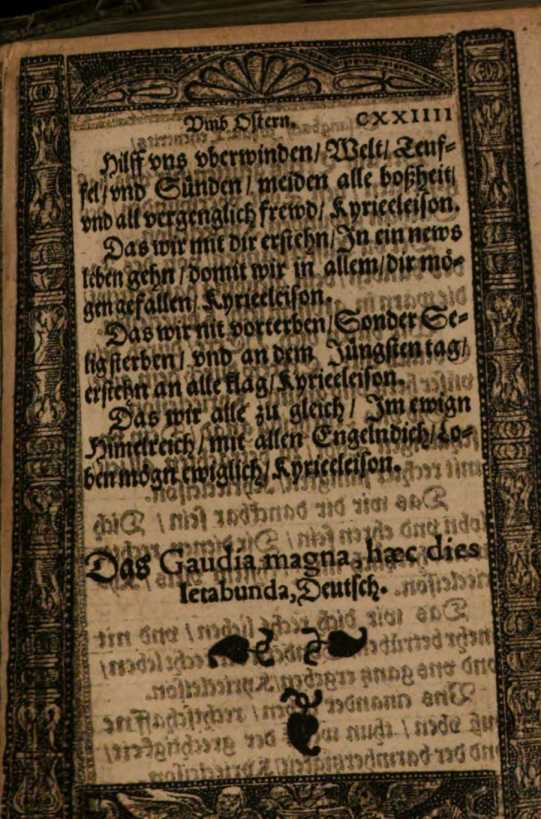 Vmb Ostern. CXXIIII
Hilff vns vberwinden/Welt/Teuf-
fel/vnd Sünden/meiden alle boßheit/
vnd all vergenglich frewd/Kyrieeleison.
Das wir mit dir erstehn/In ein news
leben gehn/domit wir in allem/dir mö-
gen gefallen/Kyrieeleison.
Das wir nit vorterben/Sonder Se-
lig sterben/vnd an dem Jüngsten tag/
erstehn an alle klag/Kyrieeleison.
Das wir alle zu gleich/Im ewign
Himelreich/mit allen Engeln dich/Lo-
ben mögn ewiglich/Kyrieeleison.
Das Gaudia magna, hæc dies
letabunda, Deutsch.